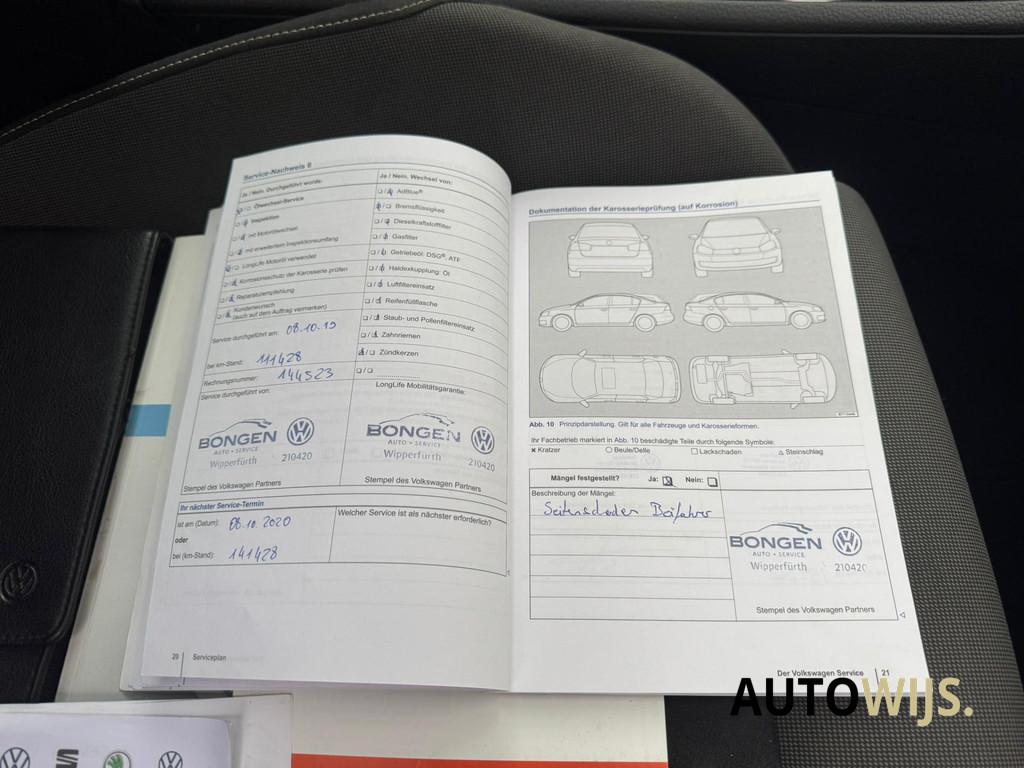 Service-Nachweis 8
Ja / Nein, Durchgeführt wurde:
Ölwechsel-Service
Inspektion
mit Motorölwechsel
mit erweitertem Inspektionsumfang
LongLife Motoröl verwendet
Korrosionsschutz der Karosserie prüfen
Reparaturempfehlung
Kundenwunsch
(auch auf dem Auftrag vermerken)
Service durchgeführt am: 08.10.19
bei km-Stand: 111428
Rechnungsnummer: 144523
Service durchgeführt von:
BONGEN
AUTO • SERVICE
Wipperfürth 210420
Stempel des Volkswagen Partners
Ja / Nein, Wechsel von:
AdBlue®
Bremsflüssigkeit
Dieselkraftstofffilter
Gasfilter
Getriebeöl: DSG®, ATF
Haldexkupplung: Öl
Luftfiltereinsatz
Reifenfüllflasche
Staub- und Pollenfiltereinsatz
Zahnriemen
Zündkerzen
LongLife Mobilitätsgarantie:
BONGEN
AUTO • SERVICE
Wipperfürth 210420
Stempel des Volkswagen Partners
Ihr nächster Service-Termin
ist am (Datum): 08.10.2020
oder
bei (km-Stand): 141428
Welcher Service ist als nächster erforderlich?
20 Serviceplan
Dokumentation der Karosserieprüfung (auf Korrosion)
Abb. 10 Prinzipdarstellung. Gilt für alle Fahrzeuge und Karosserieformen.
Ihr Fachbetrieb markiert in Abb. 10 beschädigte Teile durch folgende Symbole:
Kratzer Beule/Delle Lackschaden Steinschlag
Mängel festgestellt? Ja: Nein:
Beschreibung der Mängel:
Beifahrer
BONGEN
AUTO • SERVICE
Wipperfürth 210420
Stempel des Volkswagen Partners
Der Volkswagen Service 21
AUTOWIJS.